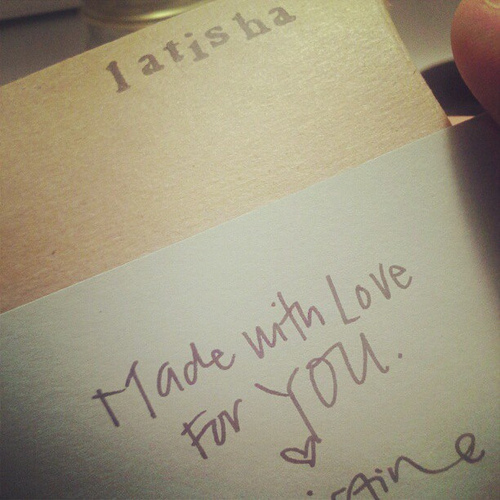 latisha
Made with Love
For YOU.